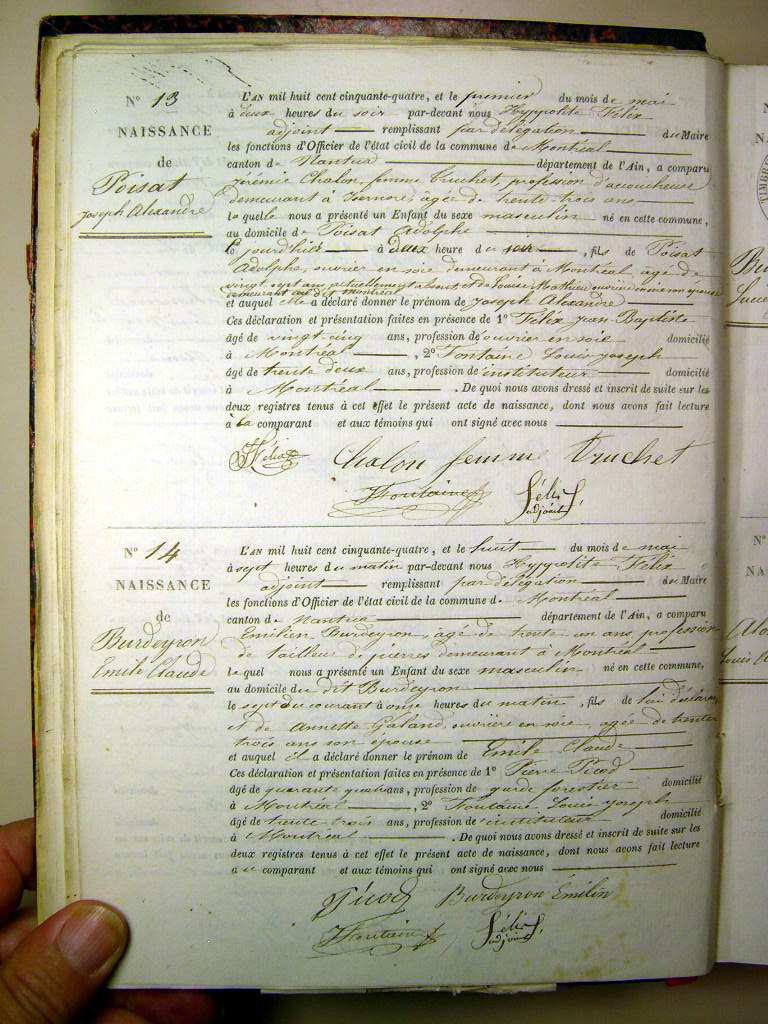 N° 13
NAISSANCE
de
Poisat
Joseph Alexandre
L'AN mil huit cent cinquante-quatre, et le premier du mois de mai
à deux heures du soir par-devant nous Hyppolite Félix
adjoint remplissant par délégation du Maire
les fonctions d'Officier de l'état civil de la commune de Montréal
canton de Nantua département de l'Ain, a comparu
Jérémie Chalon, femme Truchet, profession d'accoucheuse
demeurant à Izernore, âgée de trente trois ans
laquelle nous a présenté un Enfant du sexe masculin né en cette commune,
au domicile de Poisat Adolphe
le jourd'hier à deux heure du soir, fils de Poisat
Adolphe, ouvrier en soie demeurant à Montréal âgé de
vingt sept ans, actuellement absent et de Louise Mathieu ouvrière en soie son épouse
demeurant au dit Montréal
et auquel elle a déclaré donner le prénom de Joseph Alexandre
Ces déclaration et présentation faites en présence de 1° Félix Jean Baptiste
âgé de vingt-cinq ans, profession de ouvrier en soie domicilié
à Montréal, 2° Fontaine Louis Joseph
âgé de trente deux ans, profession de instituteur domicilié
à Montréal. De quoi nous avons dressé et inscrit de suite sur les
deux registres tenus à cet effet le présent acte de naissance, dont nous avons fait lecture
à la comparant et aux témoins qui ont signé avec nous
Félix Chalon femme Truchet
Fontaine Félix
adjoint
N° 14
NAISSANCE
de
Burdeyron
Emile Claude
L'AN mil huit cent cinquante-quatre, et le huit du mois de mai
à sept heures du matin par-devant nous Hyppolite Félix
adjoint remplissant par délégation du Maire
les fonctions d'Officier de l'état civil de la commune de Montréal
canton de Nantua département de l'Ain, a comparu
Emilien Burdeyron, âgé de trente un ans profession
de tailleur de pierres demeurant à Montréal
lequel nous a présenté un Enfant du sexe masculin né en cette commune,
au domicile du dit Burdeyron
le sept du courant à onze heures du matin, fils de lui déclarant
et de Annette Galand, ouvrière en soie, âgée de trente
trois ans son épouse
et auquel il a déclaré donner le prénom de Emile Claude
Ces déclaration et présentation faites en présence de 1° Pierre Picod
âgé de quarante quatre ans, profession de garde forestier domicilié
à Montréal, 2° Fontaine Louis Joseph
âgé de trente-trois ans, profession de instituteur domicilié
à Montréal. De quoi nous avons dressé et inscrit de suite sur les
deux registres tenus à cet effet le présent acte de naissance, dont nous avons fait lecture
au comparant et aux témoins qui ont signé avec nous
Picod Burdeyron Emilin
Fontaine Félix
adjoint